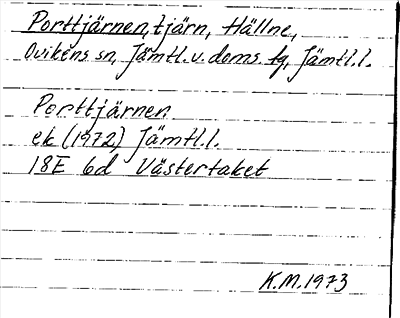 Porttjärnen, tjärn, Hällne,
Ovikens sn, Jämtl. v. doms. fg, Jämtl. l.
Porttjärnen
ek (1972) Jämtl. l.
18E 6d Västertaket
K.M. 1973